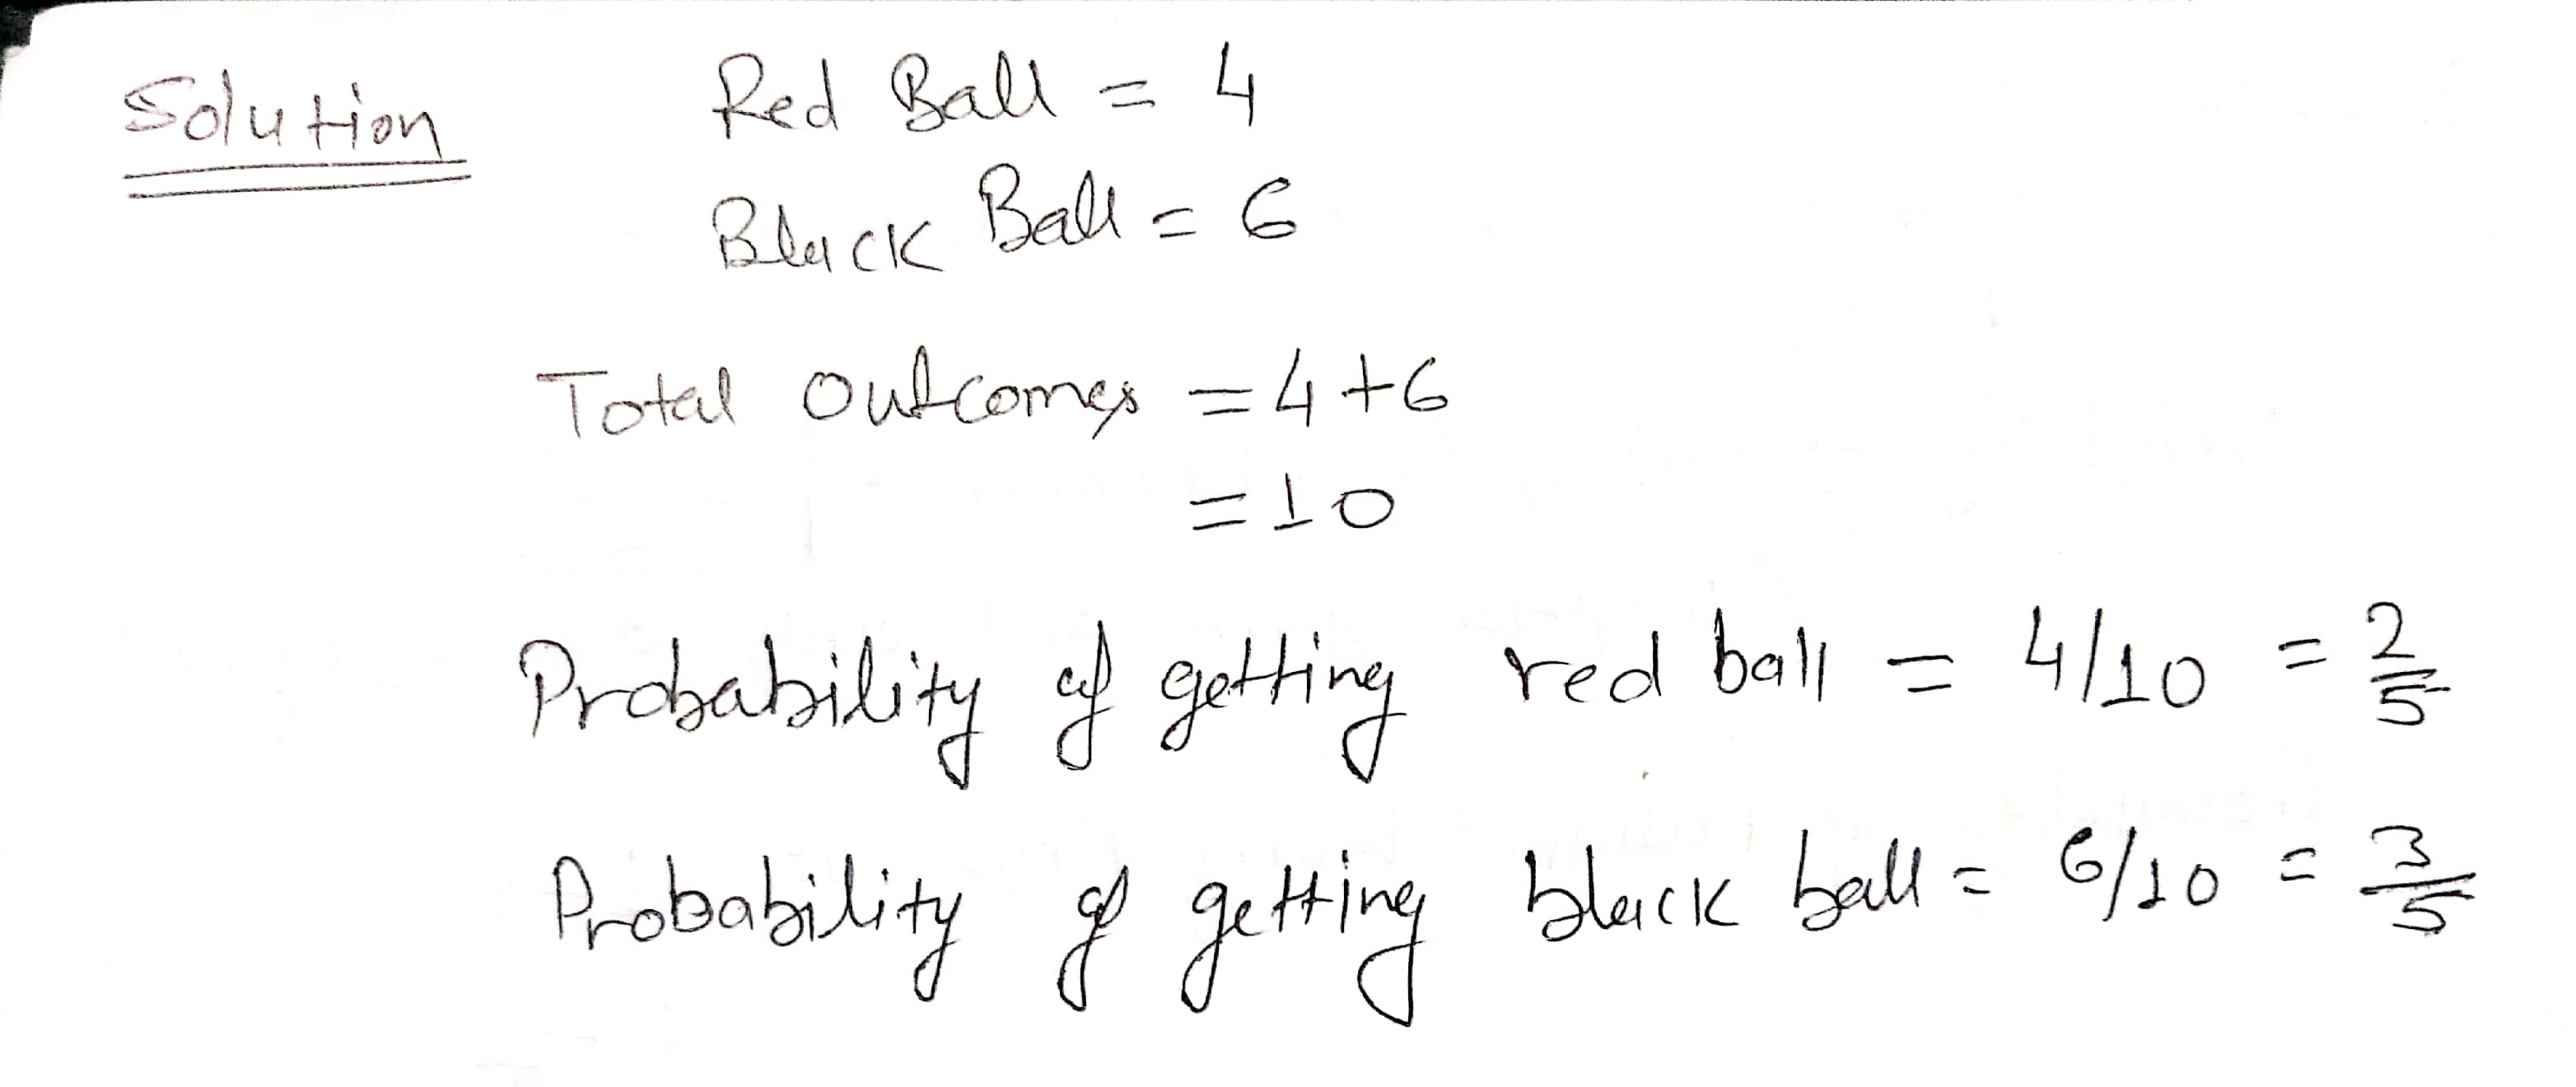 Solution
Red Ball = 4
Black Ball = 6
Total outcomes = 4+6
= 10
Probability of getting red ball = 4/10 = 2/5
Probability of getting black ball = 6/10 = 3/5